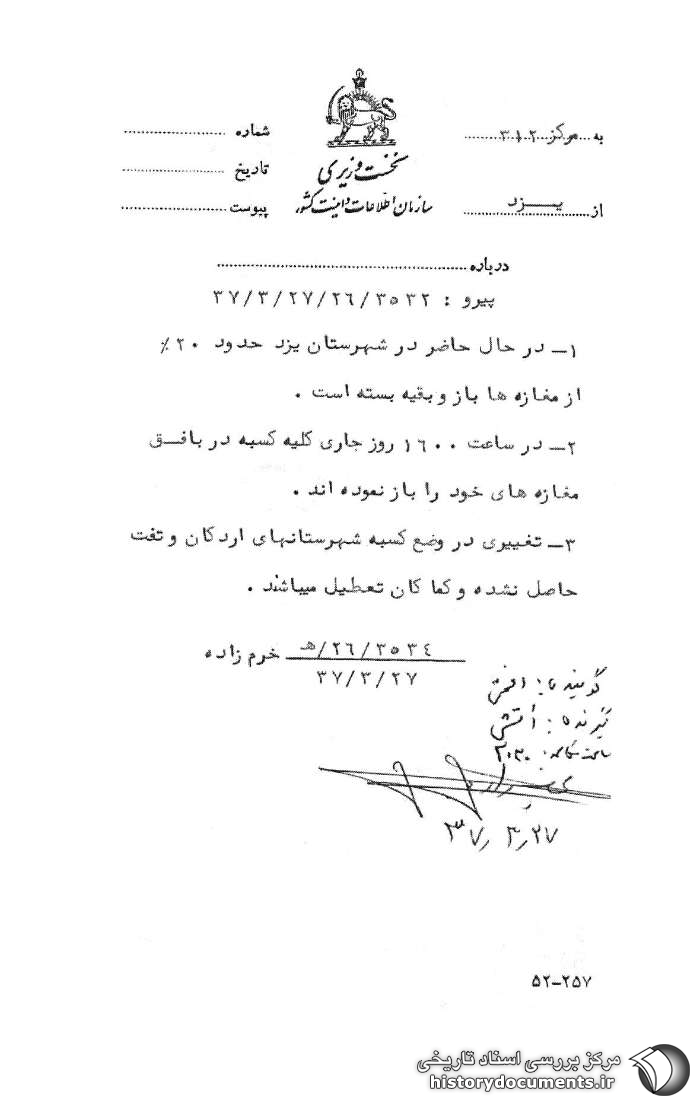 به مرکز ۳۱۲
شماره
نخست وزیری
تاریخ
سازمان اطلاعات و امنیت کشور
از یزد
پیوست
درباره
پیرو : ۳۷/۳/۲۷/۲٦/۳۵۳۲
۱ـ در حال حاضر در شهرستان یزد حدود ۲۰٪
از مغازه ها باز و بقیه بسته است .
۲ـ در ساعت ۱٦۰۰ روز جاری کلیه کسبه در بافق
مغازه های خود را باز نموده اند .
۳ـ تغییری در وضع کسبه شهرستانهای اردکان و تفت
حاصل نشده و کما کان تعطیل میباشند .
۲٦/۳۵۳٤/هـ خرم زاده
۳۷/۳/۲۷
گوینده :
گیرنده :
ساعت مکالمه : ۲۰۳۰
۳۷٫۳٫۲۷
۵۲-۲۵۷
مرکز بررسی اسناد تاریخی
historydocuments.ir